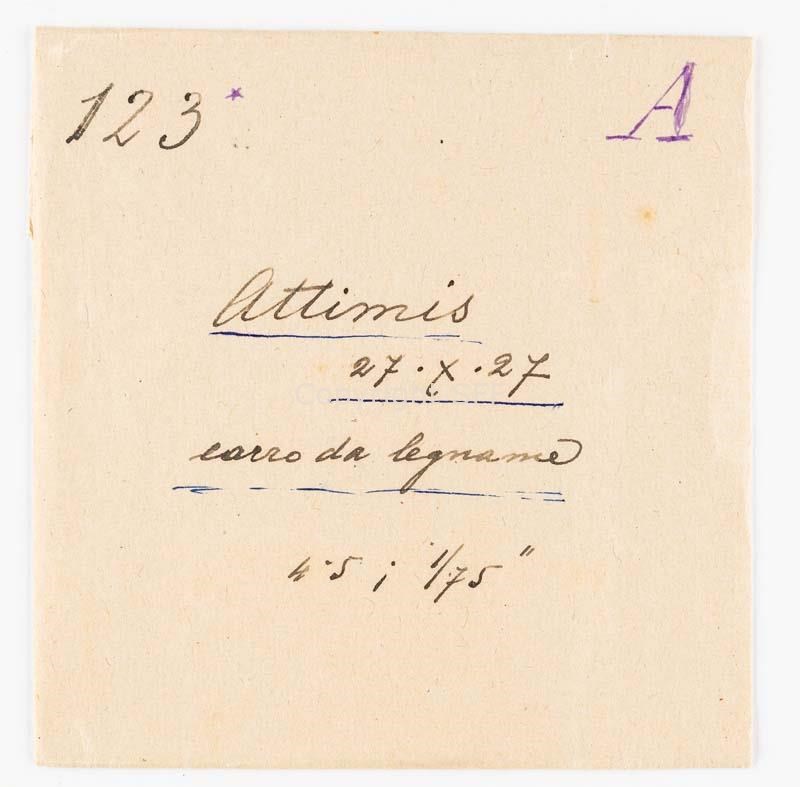 123* A
Attimis
27.X.27
carro da legname
4.5 ; 1/75"